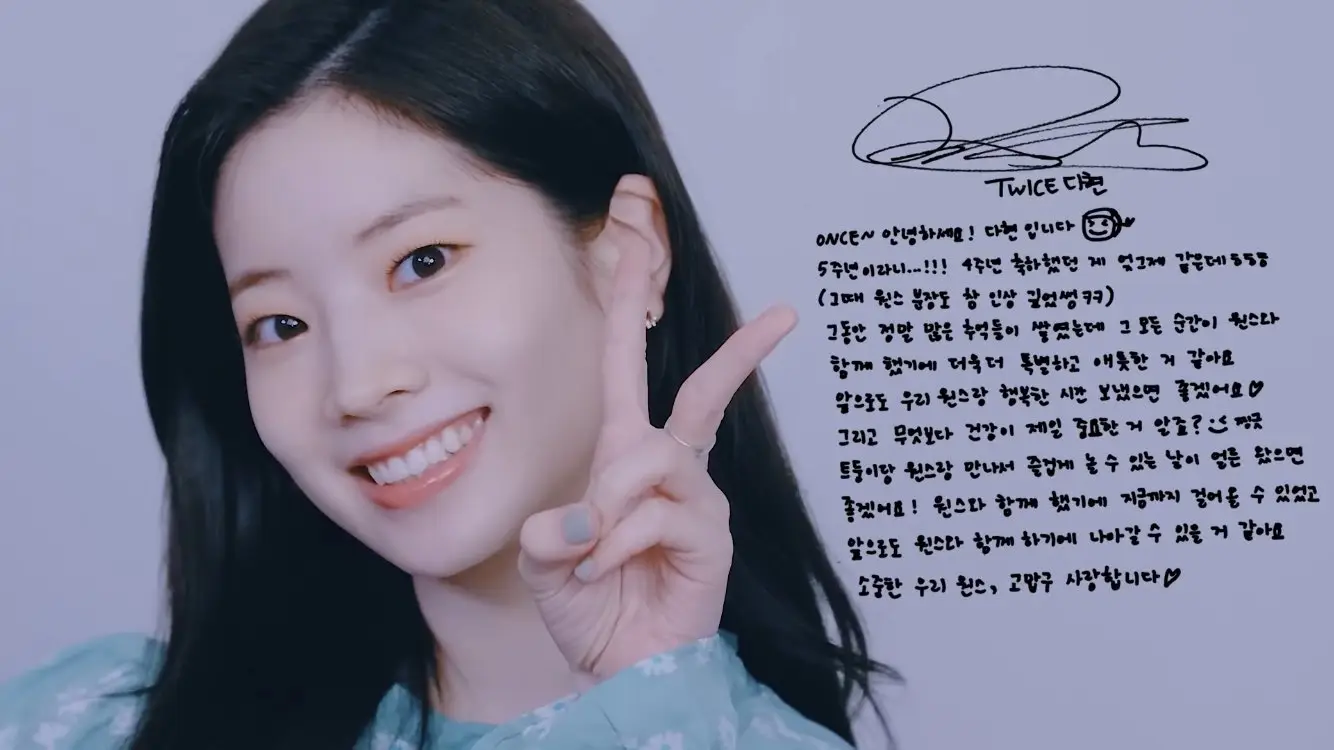 TWICE 다현
ONCE~ 안녕하세요! 다현입니다
5주년이라니...!!! 4주년 축하했던 게 엊그제 같은데ㅎㅎㅎ
(그때 원스 분장도 참 인상 깊었썽ㅋㅋ)
그동안 정말 많은 추억들이 쌓였는데 그 모든 순간이 원스와
함께 했기에 더욱 더 특별하고 애틋한 거 같아요
앞으로도 우리 원스랑 행복한 시간 보냈으면 좋겠어요♡
그리고 무엇보다 건강이 제일 중요한 거 알죠? 찡긋
트둥이랑 원스랑 만나서 즐겁게 놀 수 있는 날이 얼른 왔으면
좋겠어요! 원스와 함께 했기에 지금까지 걸어올 수 있었고
앞으로도 원스와 함께 하기에 나아갈 수 있을 거 같아요
소중한 우리 원스, 고맙구 사랑합니다♡